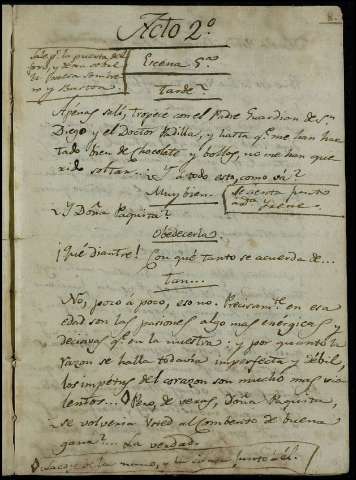 8.
Acto 2º
Sale pr. la puerta del
foro, y dexa sobre
la mesa sombre-
ro y Baston.
Escena 5ª
Tarde?
Apénas salí, tropecé con el Padre Guardian de Sn.
Diego y el Doctor Padilla, y hasta qe. me han har-
tado bien de chocolate y bollos, no me han que-
rido soltar... ¿Y á todo esto, como va?
Muy bien.
Se sienta junto
a Da. Irene.
¿Y Doña Paquita?
Obedecerla.
¡Qué diantre! Con qué tanto se acuerda de...
Tan...
No, poco á poco, eso no. Precisamte. en esa
edad son las pasiones algo mas enérgicas y
decisivas qe. en la nuestra: y por quanto la
razon se halla todavia imperfecta y débil,
los impetus del corazon son mucho mas vio-
lentos... Pero, de veras, Doña Paquita,
se volveria Vsted al Combento de buena
gana?... La verdad.
de la mano, y la sienta junto á el.